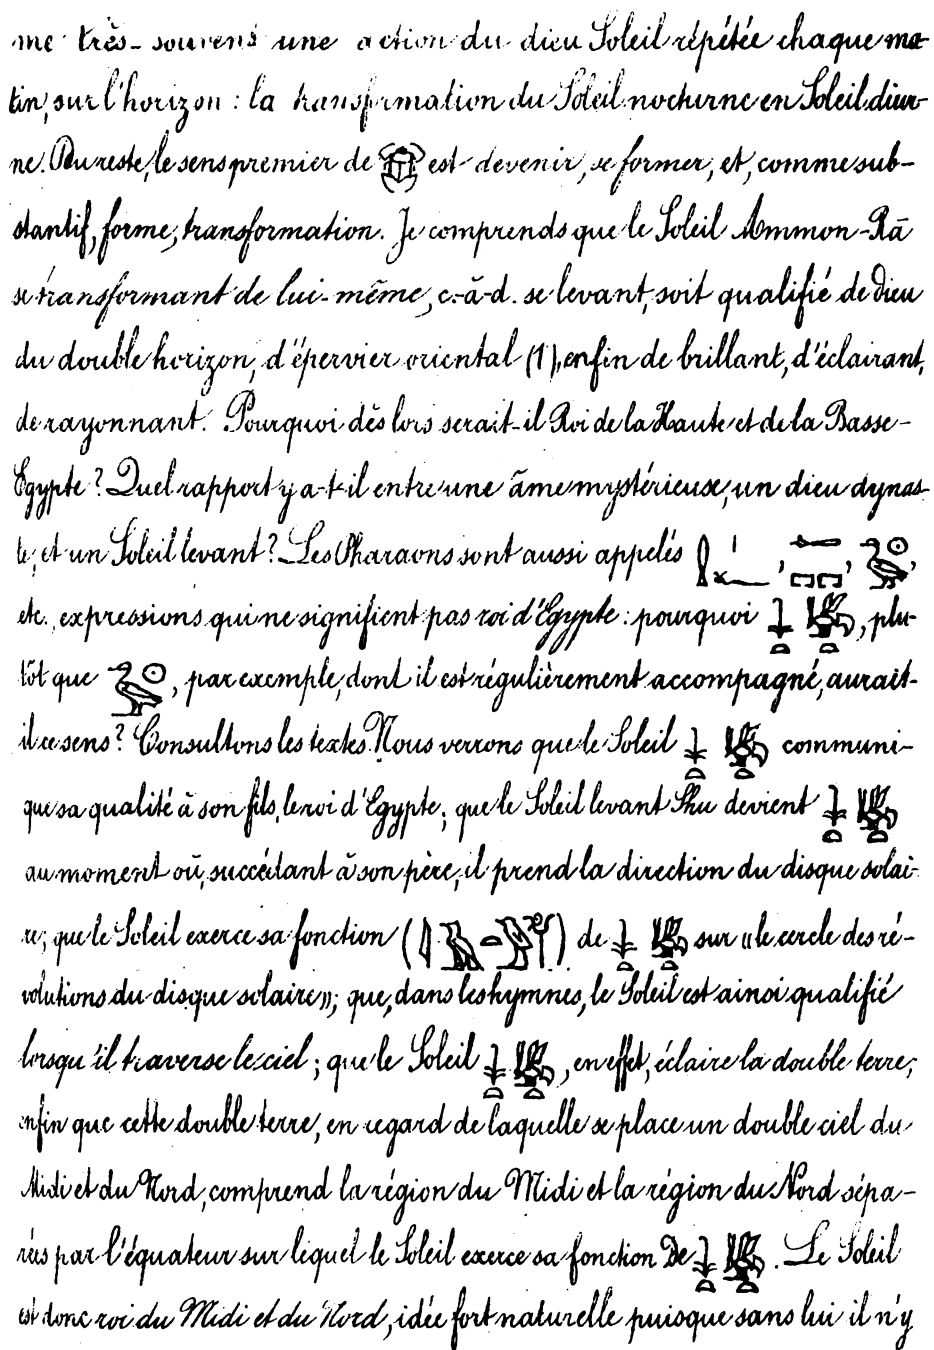 me très-souvent une action du dieu Soleil répétée chaque ma-
tin, sur l'horizon : la transformation du Soleil nocturne en Soleil diur-
ne. Du reste, le sens premier de 𓆣 est devenir, se former, et, comme sub-
stantif, forme, transformation. Je comprends que le Soleil Ammon-Râ
se transformant de lui-même, c.-à-d. se levant, soit qualifié de Dieu
du double horizon, d'épervier oriental (1), enfin de brillant, d'éclairant,
de rayonnant. Pourquoi dès lors serait-il Roi de la Haute et de la Basse-
Égypte ? Quel rapport y a-t-il entre une âme mystérieuse, un dieu dynas-
te, et un Soleil levant ? Les Pharaons sont aussi appelés
etc., expressions qui ne signifient pas roi d'Égypte : pourquoi 𓇓𓏏 𓅭, plu-
tôt que 𓅭𓇳, par exemple, dont il est régulièrement accompagné, aurait-
il ce sens ? Consultons les textes. Nous verrons que le Soleil communi-
que sa qualité à son fils, le roi d'Égypte ; que le Soleil levant Shu devient
au moment où, succédant à son père, il prend la direction du disque solai-
re ; que le Soleil exerce sa fonction ( ) de sur «le cercle des ré-
volutions du disque solaire» ; que, dans les hymnes, le Soleil est ainsi qualifié
lorsqu'il traverse le ciel ; que le Soleil , en effet, éclaire la double terre ;
enfin que cette double terre, en regard de laquelle se place un double ciel du
Midi et du Nord, comprend la région du Midi et la région du Nord sépa-
rées par l'équateur sur lequel le Soleil exerce sa fonction de . Le Soleil
est donc roi du Midi et du Nord, idée fort naturelle puisque sans lui il n'y